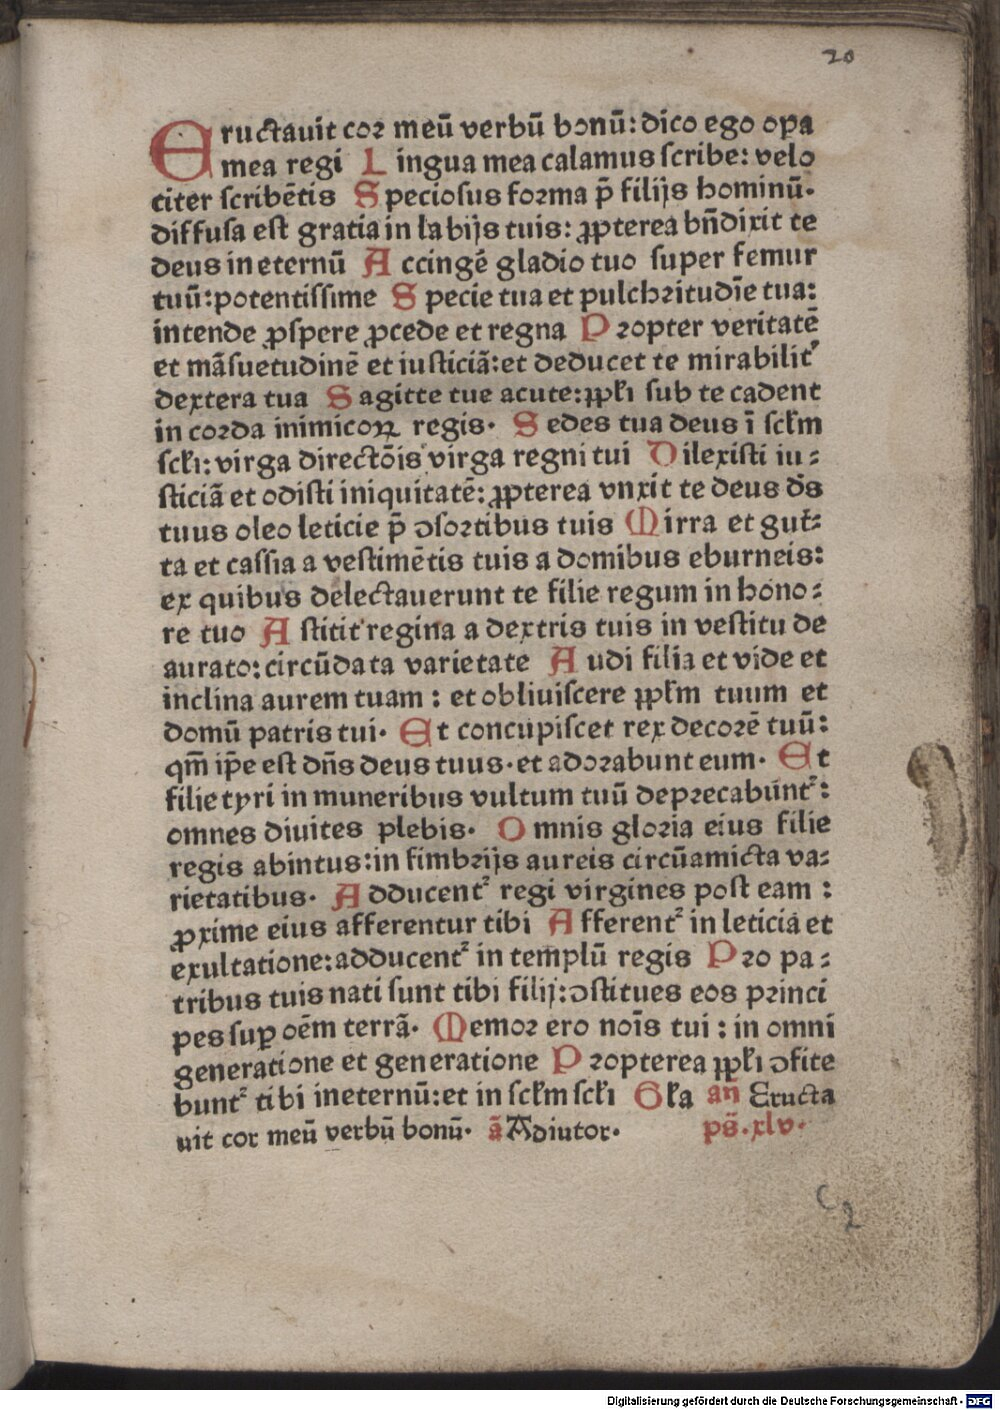 20
Eructauit cor meū verbū bonū: dico ego oꝑa
mea regi Lingua mea calamus scribe: velo
citer scribētis Speciosus forma p̄ filijs hominū.
diffusa est gratia in labijs tuis: ꝓpterea bn̄dixit te
deus in eternū Accingē gladio tuo super femur
tuū: potentissime Specie tua et pulchritudīe tua:
intende ꝓspere ꝓcede et regna Propter veritatē
et māsuetudinē et iusticiā: et deducet te mirabilit᾽
dextera tua Sagitte tue acute: ꝓpl̄i sub te cadent
in corda inimicoꝝ regis. Sedes tua deus ī scl̄m
scl̄i: virga directōis virga regni tui Dilexisti iu-
sticiā et odisti iniquitatē: ꝓpterea vnxit te deus ds̄
tuus oleo leticie p̄ ↄsortibus tuis Mirra et gut-
ta et cassia a vestimētis tuis a domibus eburneis:
ex quibus delectauerunt te filie regum in hono-
re tuo Astitit regina a dextris tuis in vestitu de
aurato: circūdata varietate Audi filia et vide et
inclina aurem tuam: et obliuiscere ꝓpl̄m tuum et
domū patris tui. Et concupiscet rex decorē tuū:
qm̄ ip̄e est dn̄s deus tuus. et adorabunt eum. Et
filie tyri in muneribus vultum tuū deprecabunt᾽:
omnes diuites plebis. Omnis gloria eius filie
regis abintus: in fimbrijs aureis circūamicta va-
rietatibus. Adducent᾽ regi virgines post eam:
ꝓxime eius afferentur tibi Afferent᾽ in leticia et
exultatione: adducent᾽ in templū regis Pro pa-
tribus tuis nati sunt tibi filij: ↄstitues eos princi
pes suꝑ oēm terrā. Memor ero noīs tui: in omni
generatione et generatione Propterea ꝓpl̄i ↄfite
bunt᾽ tibi in eternū: et in scl̄m scl̄i Gl̄a an̄ Eructa
uit cor meū verbū bonū. ā Adiutor. ps̄. xlv.
c2
Digitalisierung gefördert durch die Deutsche Forschungsgemeinschaft - DFG